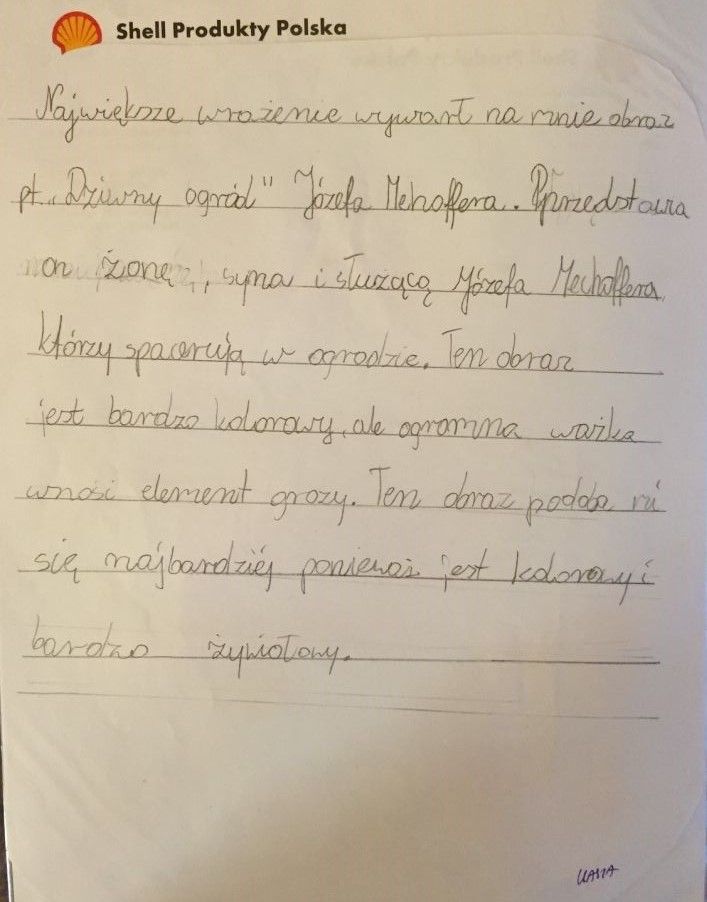 Shell Produkty Polska
Największe wrażenie wywarł na mnie obraz
pt. „Dziwny ogród" Józefa Mehoffera. Przedstawia
on żonę, syna i służącą Józefa Mechoffera,
którzy spacerują w ogrodzie. Ten obraz
jest bardzo kolorowy, ale ogromna ważka
wnosi element grozy. Ten obraz podoba mi
się najbardziej ponieważ jest kolorowy i
bardzo żywiołowy.
KASIA